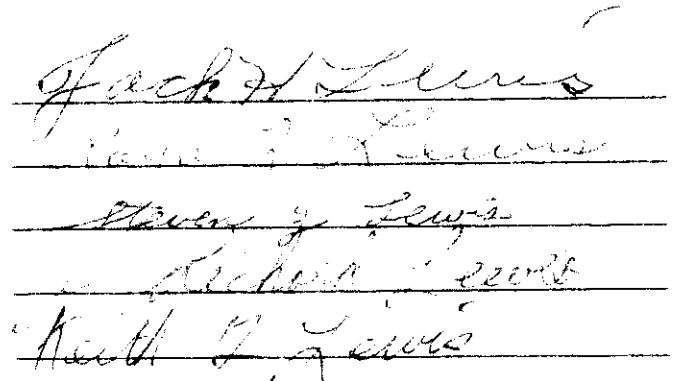 Jack H Lewis
Lewis
Steven J Lewis
Richard Lewis
Keith D. Lewis